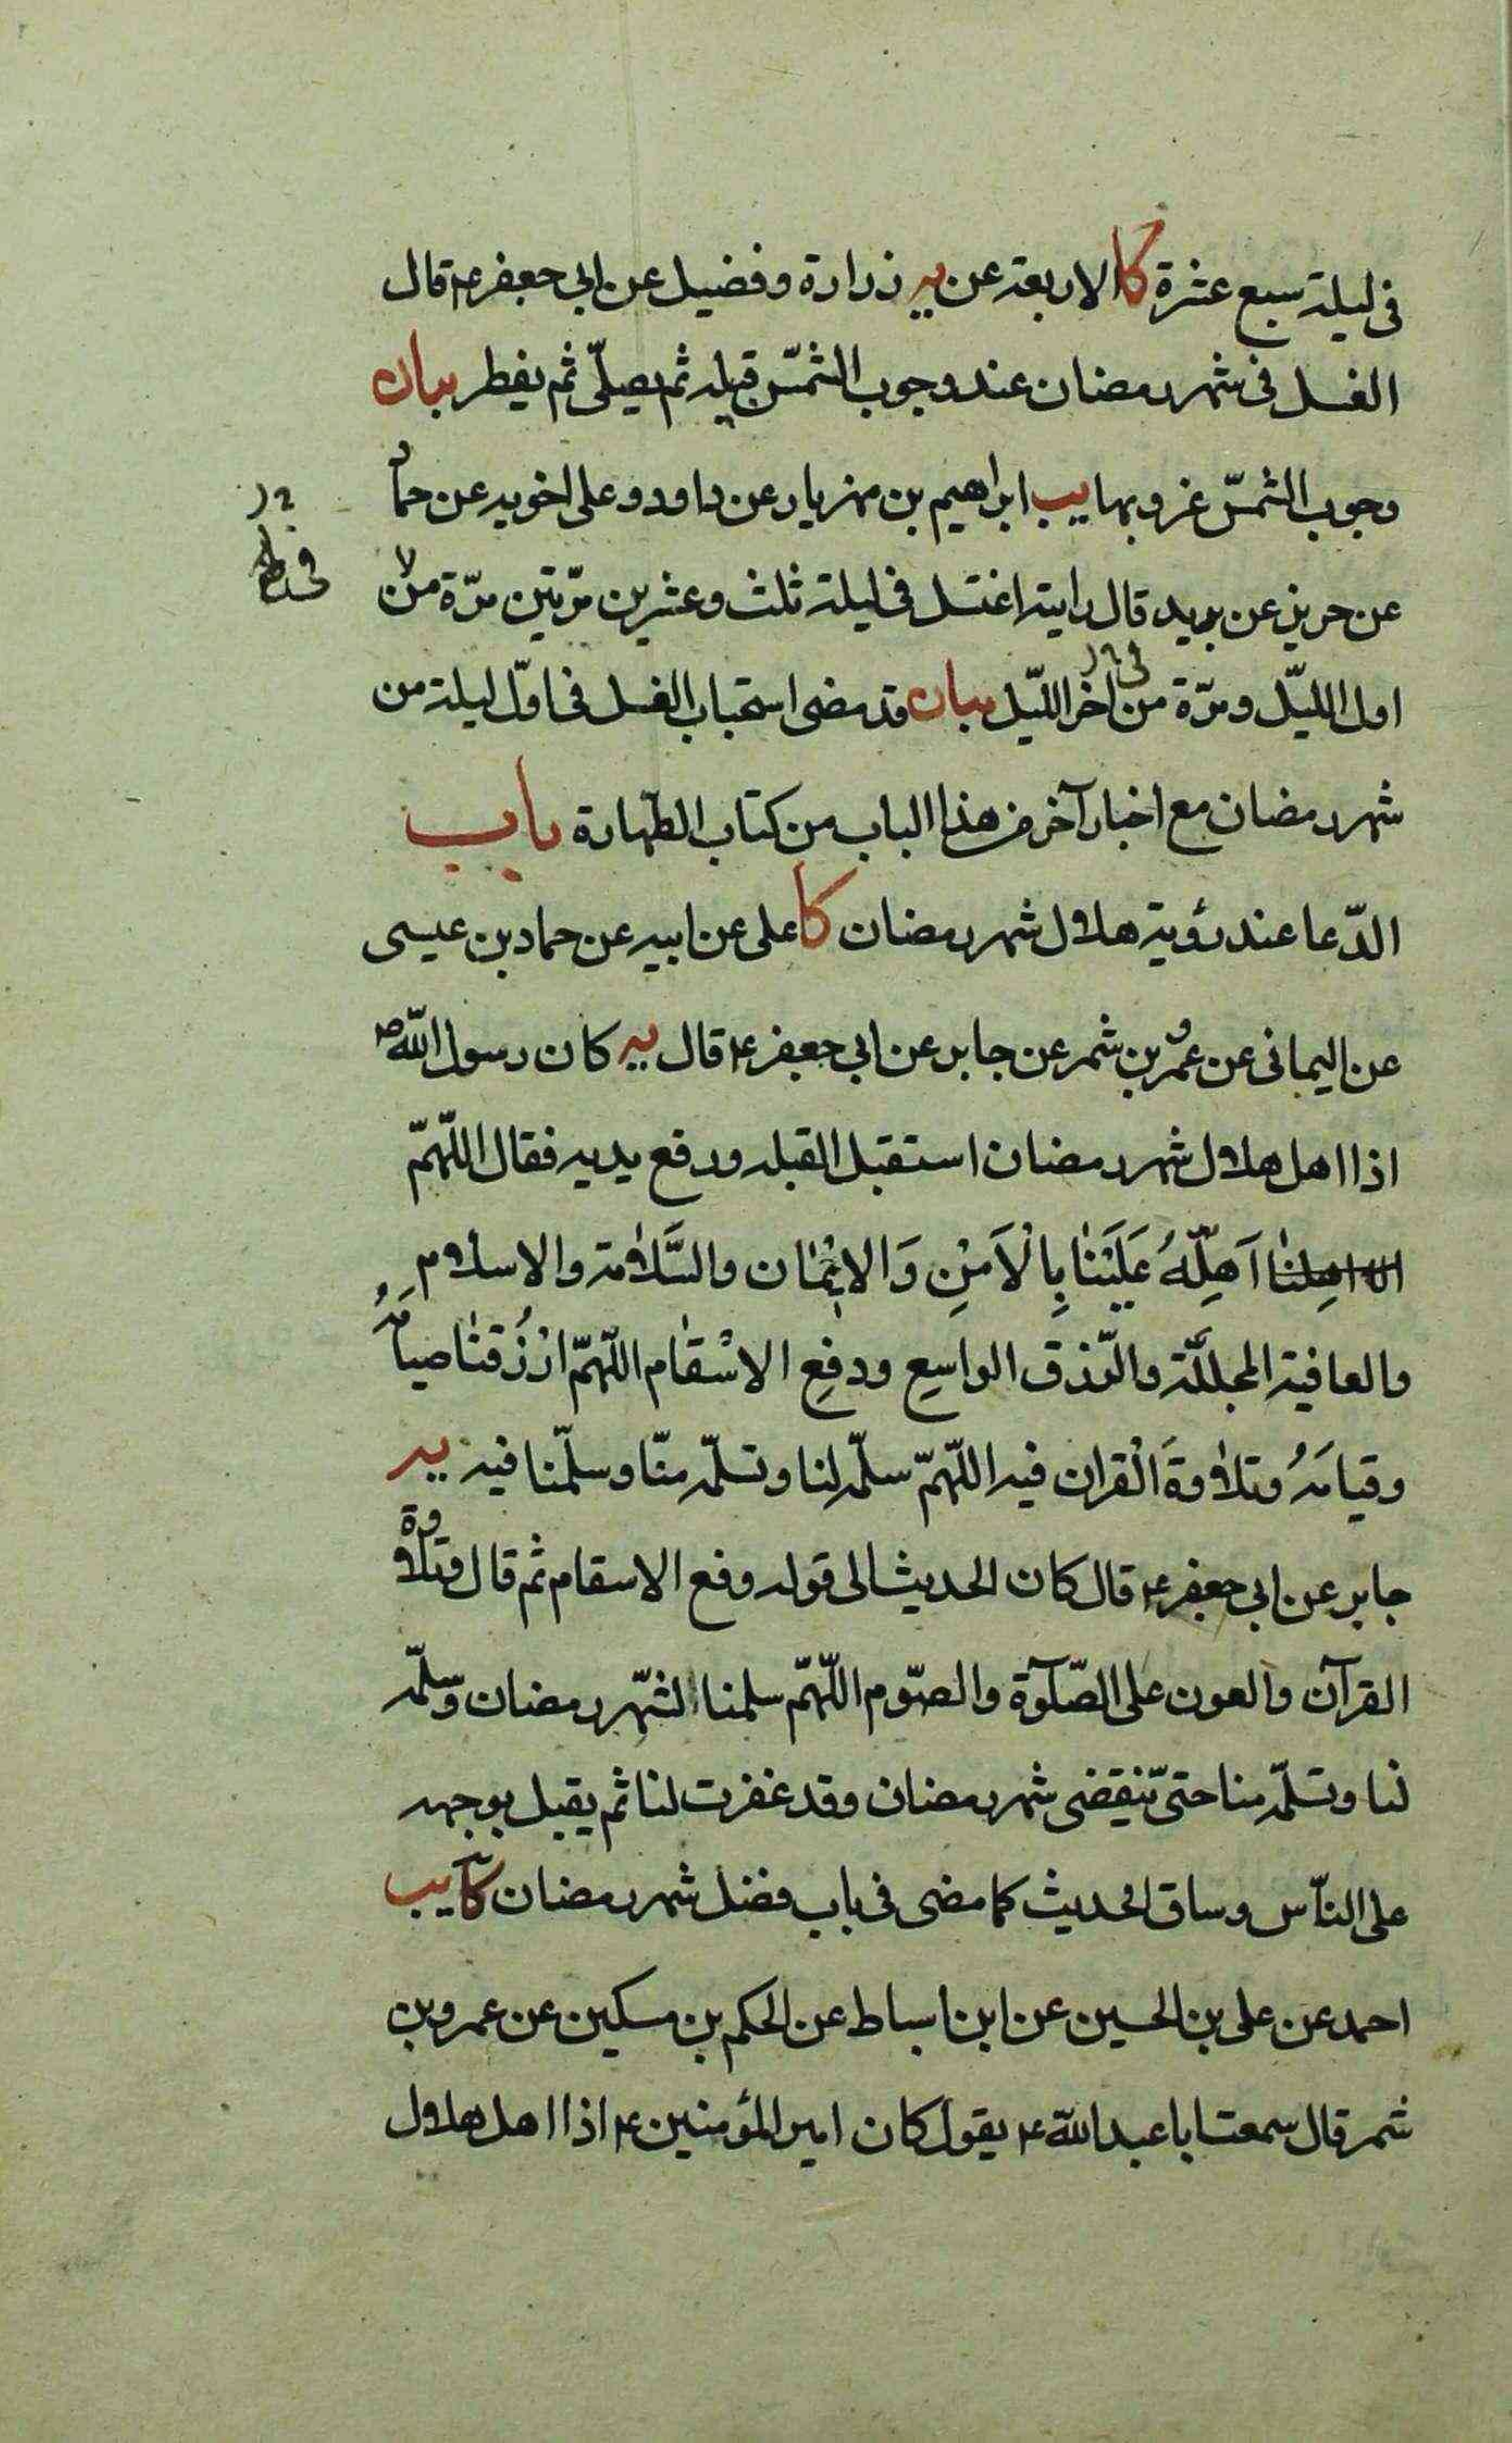 فى ليلة سبع عشرة كا الاربعة عن يه زرارة وفضيل عن ابى جعفر ع قال
الغسل فى شهر رمضان عند وجوب الشمس قبيله ثم يصلّى ثم يفطر بيان
وجوب الشمس غروبها يب ابراهيم بن مهزيار عن داود وعلى اخويه عن حماد
عن حريز عن بريد قال رايته اغتسل فى ليلة ثلث وعشرين مرّتين مرّة من
اول الليّل ومرّة من اخر الليّل بيان قد مضى استحباب الغسل فى اوّل ليلة من
شهر رمضان مع اخبار آخر من هذا الباب من كتاب الطّهارة باب
الدّعا عند رؤية هلال شهر رمضان كا على عن ابيه عن حماد بن عيسى
عن اليمانى عن عمرو بن شمر عن جابر عن ابى جعفر ع قال يه كان رسول اللّه ص
اذا اهل هلال شهر رمضان استقبل القبله ورفع يديه فقال اللّهمّ
اَهِلّهُ عَلَيْنٰا بِالْاَمْنِ وَالايْمٰان والسَّلاٰمة والاسلام
والعافية المجلّلة والرّزق الواسِعِ ودفعِ الاسْقٰام اللّهمّ ارْزُقنٰا صيامَهُ
وقيامَهُ وتلاٰوةَ الْقران فيه اللّهمّ سلّمه لنا وتسلّمه منّا وسلّمنا فيه يه
جابر عن ابى جعفر ع قال كان الحديث الى قوله ودفع الاسقام ثم قال وتلاوة
القرآن والعون على الصّلوٓة والصّوم اللّهمّ سلمنا الشهّر رمضان وسلّمه
لنا وتسلّمه منا حتىّ ينقضى شهر رمضان وقد غفرت لنا ثم يقبل بوجهه
على الناّس وساق الحديث كما مضى فى باب فضل شهر رمضان كا يب
احمد عن على بن الحسين عن ابن اسباط عن الحكم بن مسكين عن عمرو بن
شمر قال سمعت ابا عبد اللّه ع يقول كان امير المؤمنين ع اذا اهل هلال